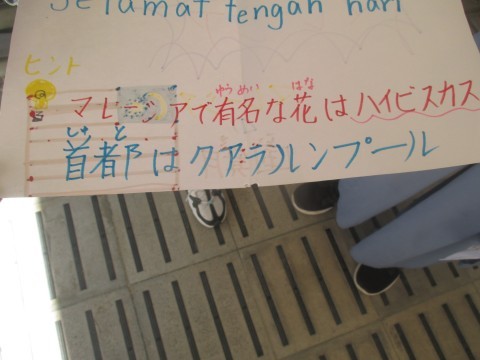 Selamat tengah hari
ヒント
ゆうめい はな
マレーシアで有名な花はハイビスカス
しゅ と
首都はクアラルンプール